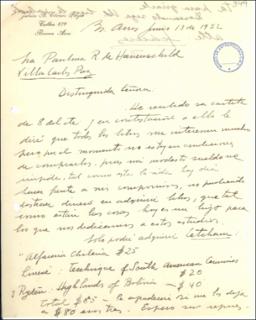 Calles 879
Buenos Aires
Bs. Aires Junio 13 de 1952
Sra Paulina R de Hanenschild
Villa Carlos Paz
Distinguida señora:
He recibido su cartita
de 8 del cte y en contestación a ella le
diré que todos los libros me interesan mucho
pero por el momento no estoy en condiciones
de comprarlos, pues mi modesto sueldo me
impide, tal como está la vida hoy día
hacer frente a mis compromisos, no pudiendo
distraer dinero en adquirir libros, que tal
como están las cosas hoy es un lujo para
los que nos dedicamos a estos estudios.
Solo podré adquirir Latcham:
"Alfarería Chilena $25
Linné: technique of South American Ceramics
$20
Rydén: Highlands of Bolivia — $40
total $85.
a $80 los tres. Espero su